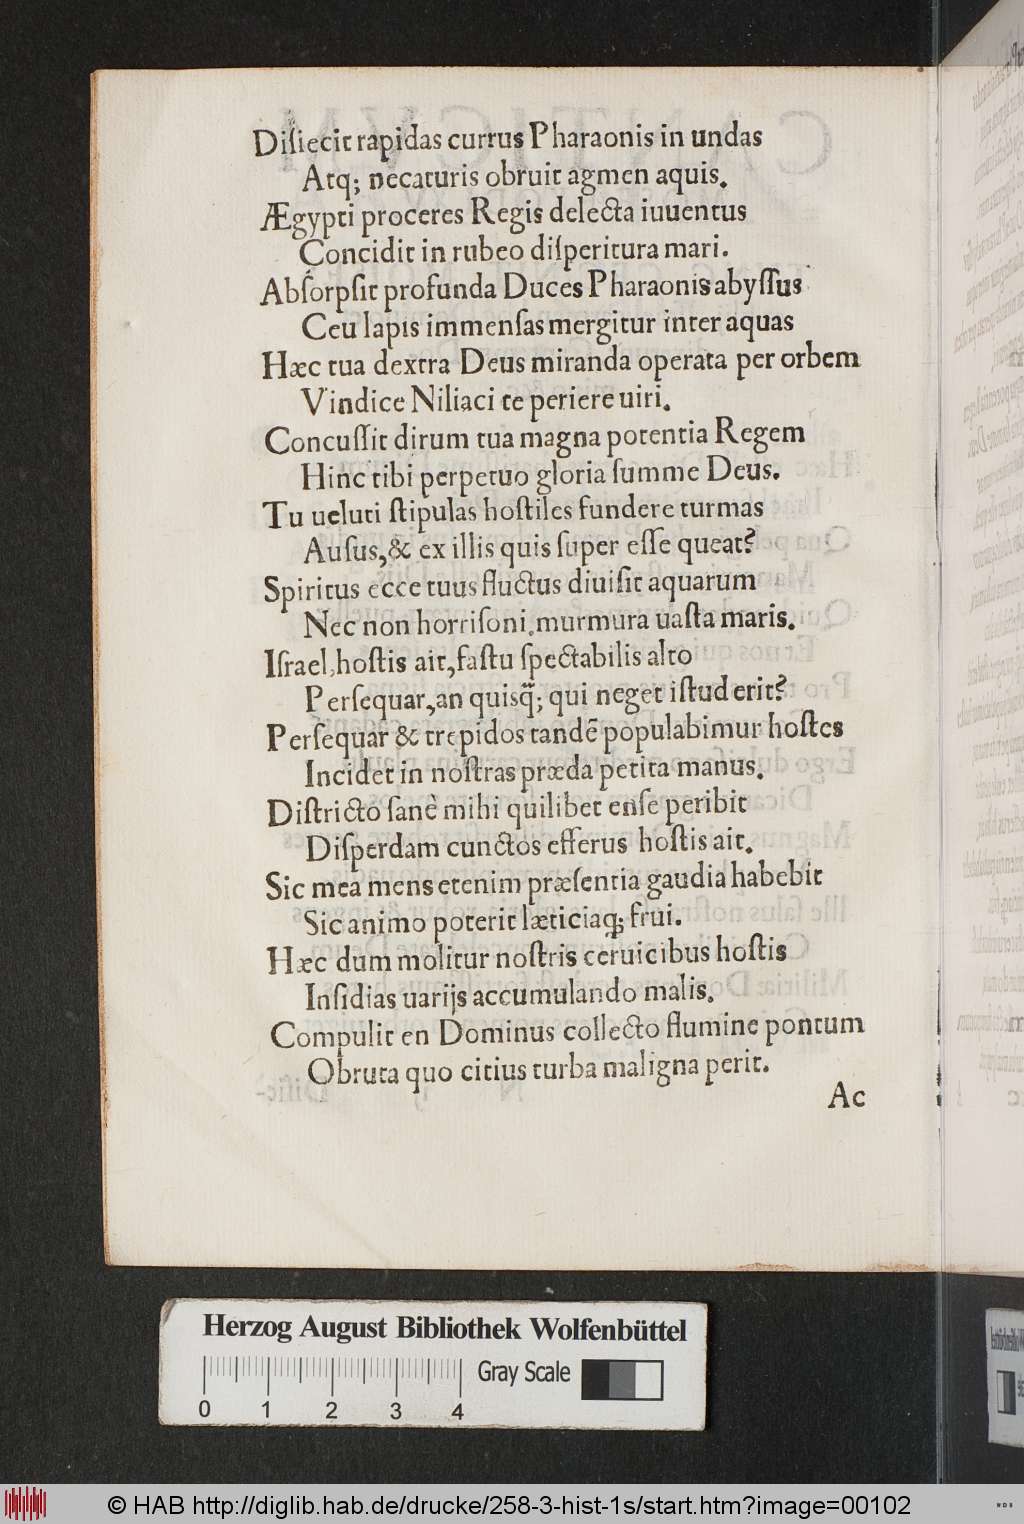 Diſiecit rapidas currus Pharaonis in undas
Atq; necaturis obruit agmen aquis.
Ægypti proceres Regis delecta iuuentus
Concidit in rubeo diſperitura mari.
Abſorpſit profunda Duces Pharaonis abyſſus
Ceu lapis immenſas mergitur inter aquas
Hæc tua dextra Deus miranda operata per orbem
Vindice Niliaci te periere uiri.
Concuſſit dirum tua magna potentia Regem
Hinc tibi perpetuo gloria ſumme Deus.
Tu ueluti ſtipulas hoſtiles fundere turmas
Auſus, & ex illis quis ſuper eſſe queat?
Spiritus ecce tuus fluctus diuiſit aquarum
Nec non horriſoni murmura uaſta maris.
Iſrael, hoſtis ait, faſtu ſpectabilis alto
Perſequar, an quisq̃; qui neget iſtud erit?
Perſequar & trepidos tandẽ populabimur hoſtes
Incidet in noſtras præda petita manus.
Diſtricto ſanè mihi quilibet enſe peribit
Diſperdam cunctos efferus hoſtis ait.
Sic mea mens etenim præſentia gaudia habebit
Sic animo poterit læticiaq; frui.
Hæc dum molitur noſtris ceruicibus hoſtis
Inſidias uarijs accumulando malis.
Compulit en Dominus collecto flumine pontum
Obruta quo citius turba maligna perit.
Ac
Herzog August Bibliothek Wolfenbüttel
Gray Scale
0 1 2 3 4
© HAB http://diglib.hab.de/drucke/258-3-hist-1s/start.htm?image=00102